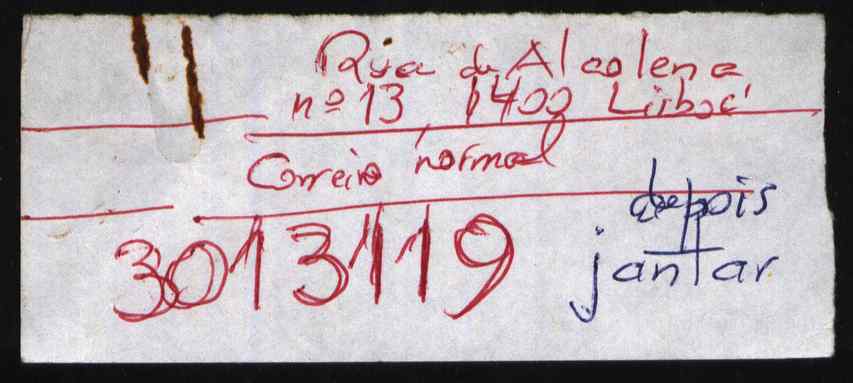 Rua de Alcolena
nº 13, 1400 Lisboa
Correio normal
3013119
depois
jantar